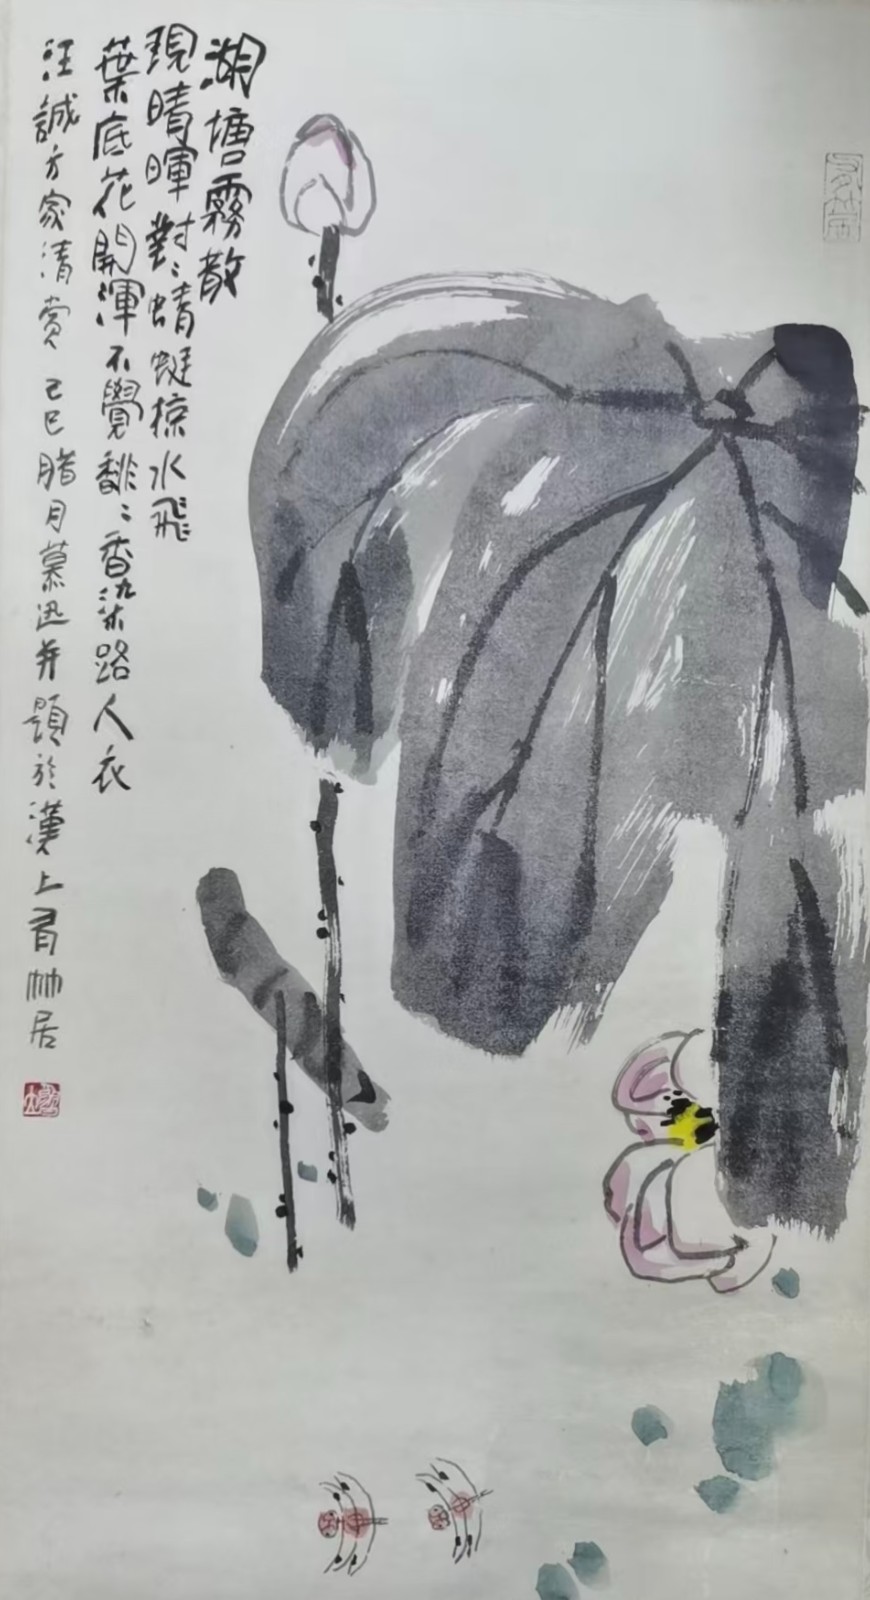 湖塘霧散
現晴暉對〻蜻蜓掠水飛
葉底花開渾不覺馡〻香染路人衣
汪誠方家清賞己巳腊月慕迅并題於漢上有竹居